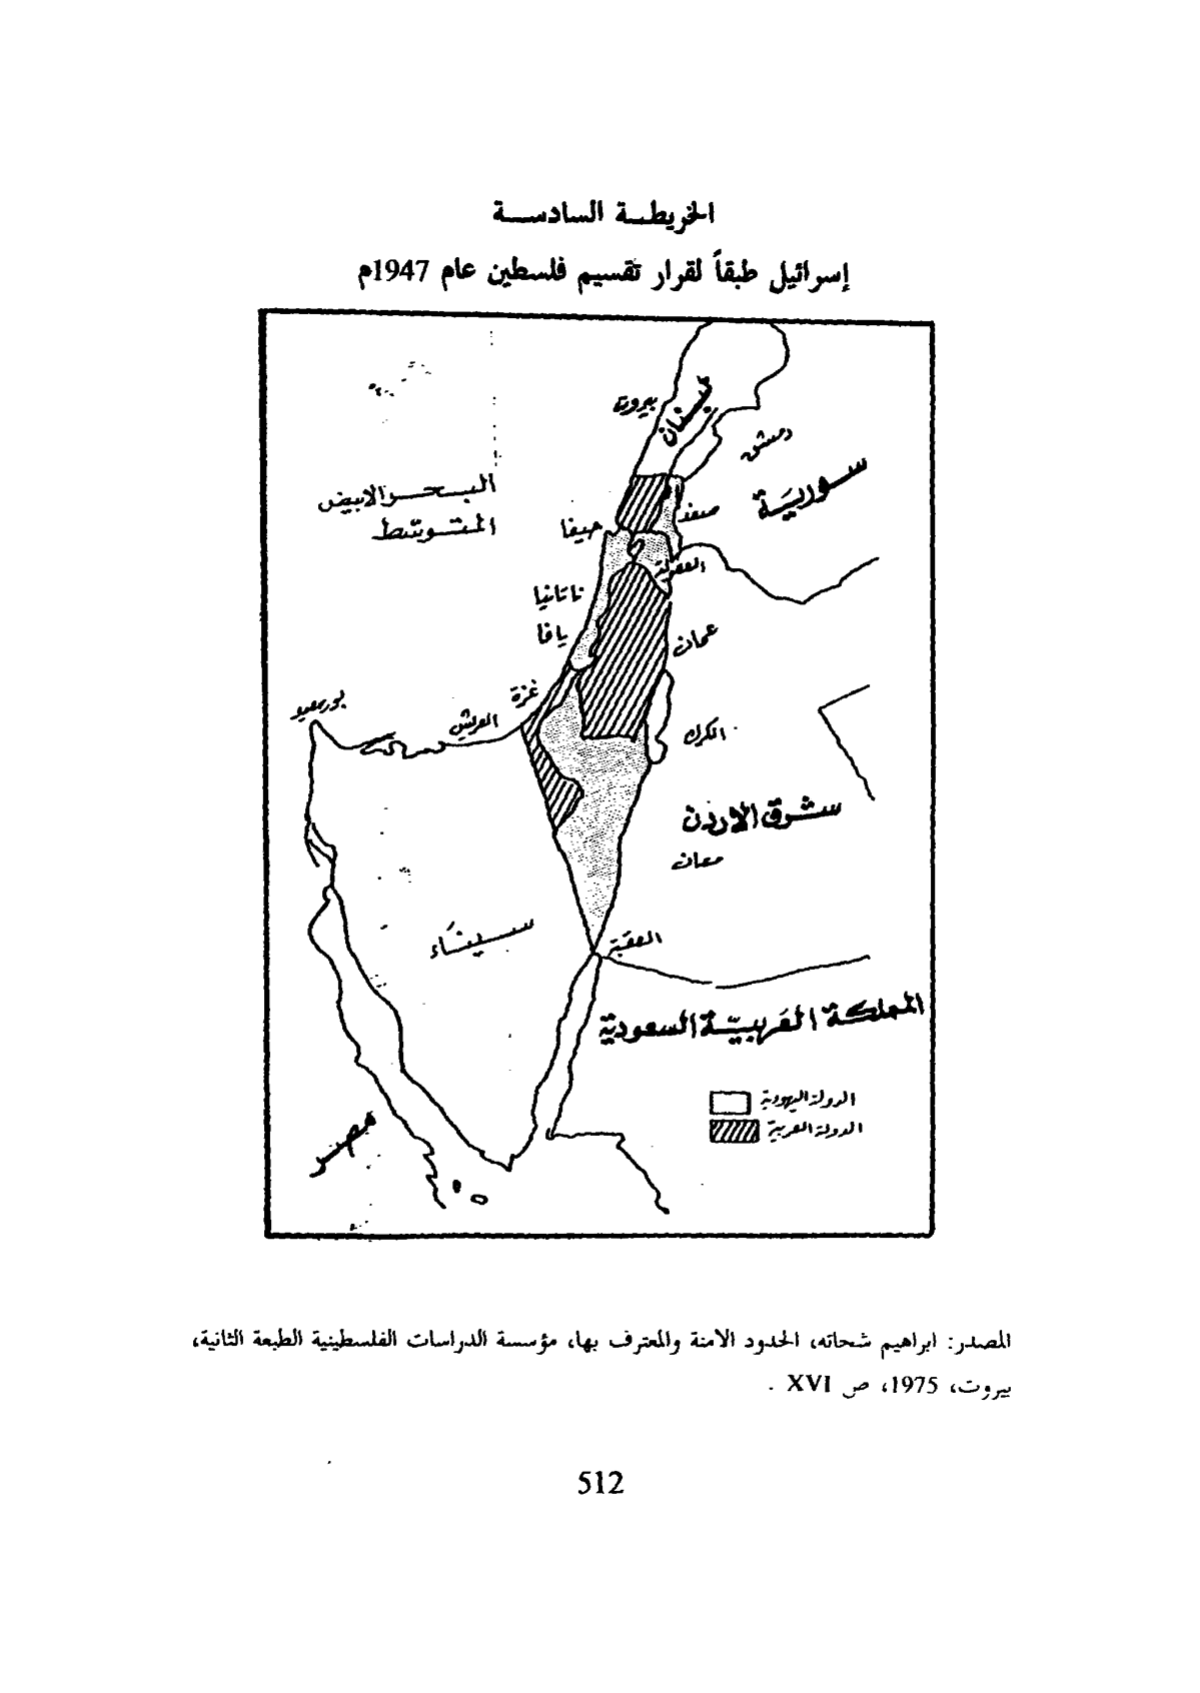 الخريطـة السادسـة
إسرائيل طبقاً لقرار تقسيم فلسطين عام 1947م
لبنان
بيروت
دمشق
سورية
البحر الابيض
المتوسّط
صفد
حيفا
العفولة
ناتانيا
يافا
عمان
غزة
بورسعيد
العريش
الكرك
شرق الاردن
معان
سيناء
العقبة
المملكة العَربيّة السعودية
الدولة اليهودية
الدولة العربية
مصر
المصدر: ابراهيم شحاته، الحدود الامنة والمعترف بها، مؤسسة الدراسات الفلسطينية الطبعة الثانية،
بيروت، 1975، ص XVI .
512